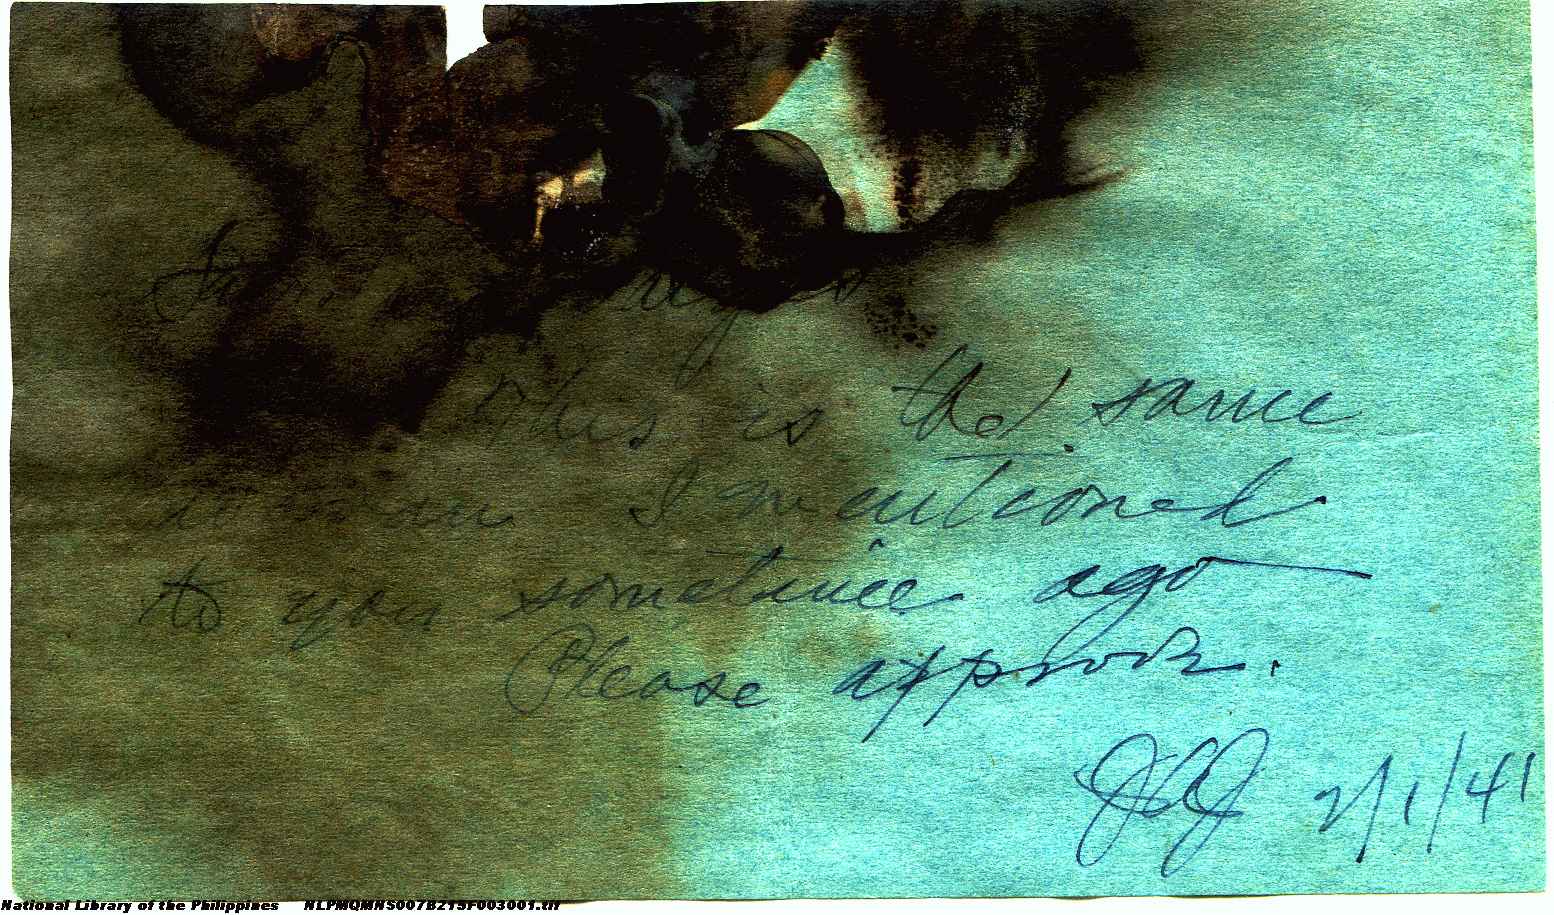 This is the same
I mentioned
to you sometime ago
Please approve.
JCJ 2/1/41
National Library of the Philippines NLPMQMNS007B219F003001.tif